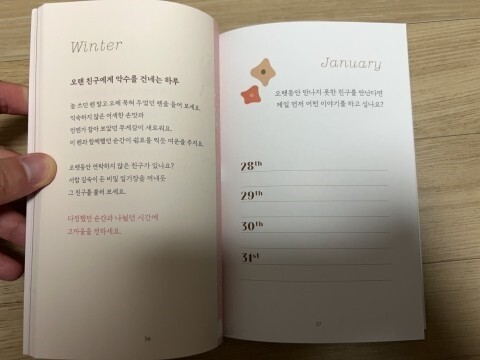 Winter
오랜 친구에게 악수를 건네는 하루
늘 쓰던 펜 말고 오래 묵혀 두었던 펜을 들어 보세요.
익숙하지 않은 어색한 손맛과
언젠가 잡아 보았던 무게감이 새로워요.
이 펜과 함께했던 순간이 쉼표를 찍듯 여운을 주지요.
오랫동안 연락하지 않은 친구가 있나요?
서랍 깊숙이 둔 비밀 일기장을 꺼내듯
그 친구를 불러 보세요.
다정했던 순간과 나눴던 시간에
고마움을 전하세요.
January
오랫동안 만나지 못한 친구를 만난다면
제일 먼저 어떤 이야기를 하고 싶나요?
28th
29th
30th
31st